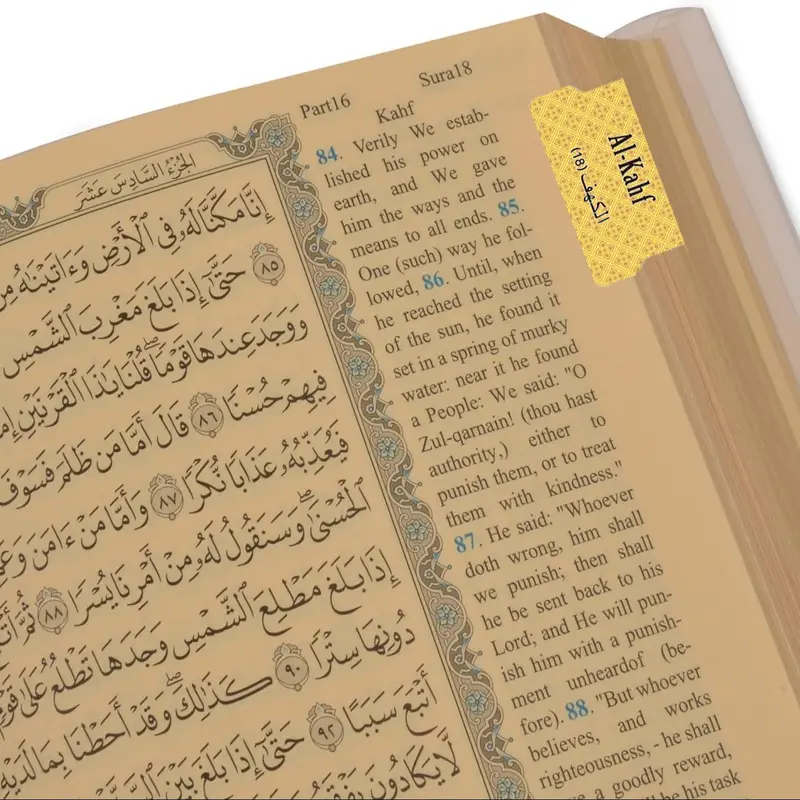 الجُزْءُ السَّادِسَ عَشَرَ
إِنَّا مَكَّنَّا لَهُۥ فِى ٱلْأَرْضِ وَءَاتَيْنَٰهُ مِن
٨٥ حَتَّىٰٓ إِذَا بَلَغَ مَغْرِبَ ٱلشَّمْسِ
وَوَجَدَ عِندَهَا قَوْمًا ۖ قُلْنَا يَٰذَا ٱلْقَرْنَيْنِ
فِيهِمْ حُسْنًا ٨٦ قَالَ أَمَّا مَن ظَلَمَ فَسَوْفَ
فَيُعَذِّبُهُۥ عَذَابًا نُّكْرًا ٨٧ وَأَمَّا مَنْ ءَامَنَ
ٱلْحُسْنَىٰ ۖ وَسَنَقُولُ لَهُۥ مِنْ أَمْرِنَا يُسْرًا ٨٨ ثُمَّ
إِذَا بَلَغَ مَطْلِعَ ٱلشَّمْسِ وَجَدَهَا تَطْلُعُ عَلَىٰ قَوْمٍ
دُونِهَا سِتْرًا ٩٠ كَذَٰلِكَ ۖ وَقَدْ أَحَطْنَا بِمَا لَدَيْهِ
أَتْبَعَ سَبَبًا ٩٢ حَتَّىٰٓ إِذَا بَلَغَ بَيْنَ
لَّا يَكَادُونَ
Part16 Sura18
Kahf
84. Verily We estab-
lished his power on
earth, and We gave
him the ways and the
means to all ends. 85.
One (such) way he fol-
lowed, 86. Until, when
he reached the setting
of the sun, he found it
set in a spring of murky
water: near it he found
a People: We said: "O
Zul-qarnain! (thou hast
authority,) either to
punish them, or to treat
them with kindness."
87. He said: "Whoever
doth wrong, him shall
we punish; then shall
he be sent back to his
Lord; and He will pun-
ish him with a punish-
ment unheardof (be-
fore). 88. "But whoever
believes, and works
righteousness, - he shall
a goodly reward,
be his task
Al-Kahf
الكهف (18)